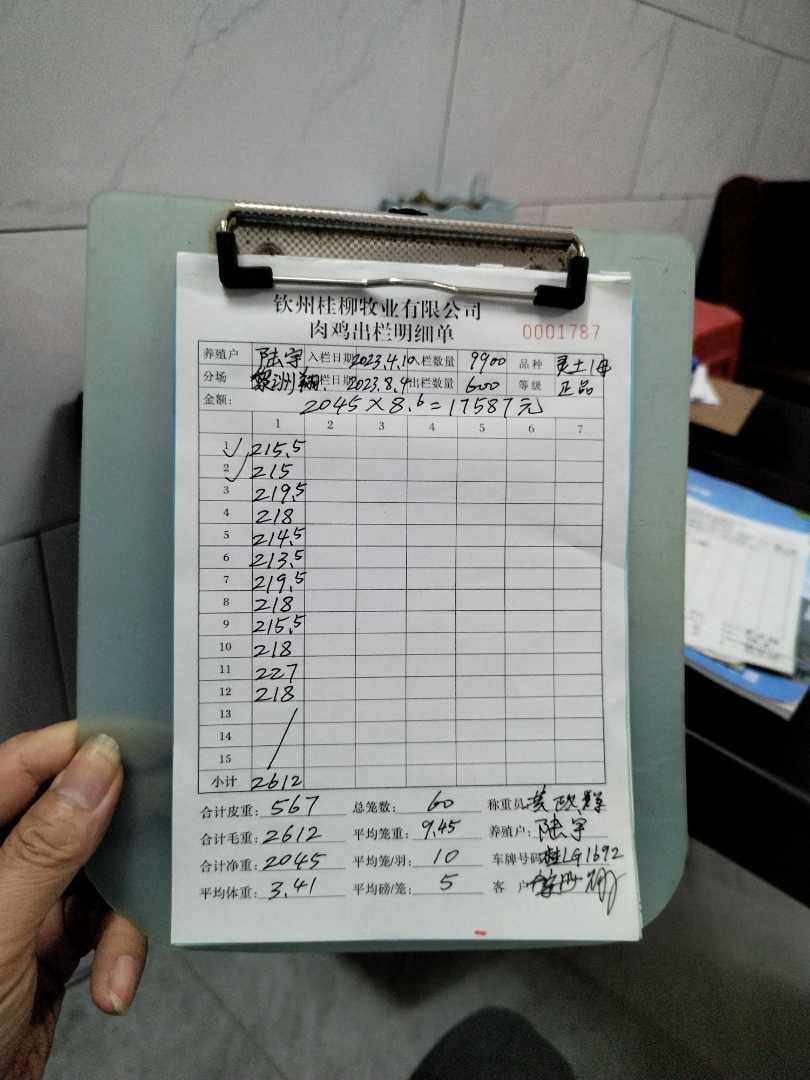 钦州桂柳牧业有限公司
肉鸡出栏明细单 0001787
养殖户 陆宇 入栏日期 2023.4.10 入栏数量 9900 品种 灵土1母
分场 黎洲翔 出栏日期 2023.8.4 出栏数量 600 等级 正品
金额: 2045×8.6=17587元
1 2 3 4 5 6 7
1 215.5
2 215
3 219.5
4 218
5 214.5
6 213.5
7 219.5
8 218
9 215.5
10 218
11 227
12 218
13
14
15
小计 2612
合计皮重: 567 总笼数: 60 称重员:
合计毛重: 2612 平均笼重: 9.45 养殖户: 陆宇
合计净重: 2045 平均笼/羽: 10 车牌号码: 桂LG1692
平均体重: 3.41 平均磅/笼: 5 客户